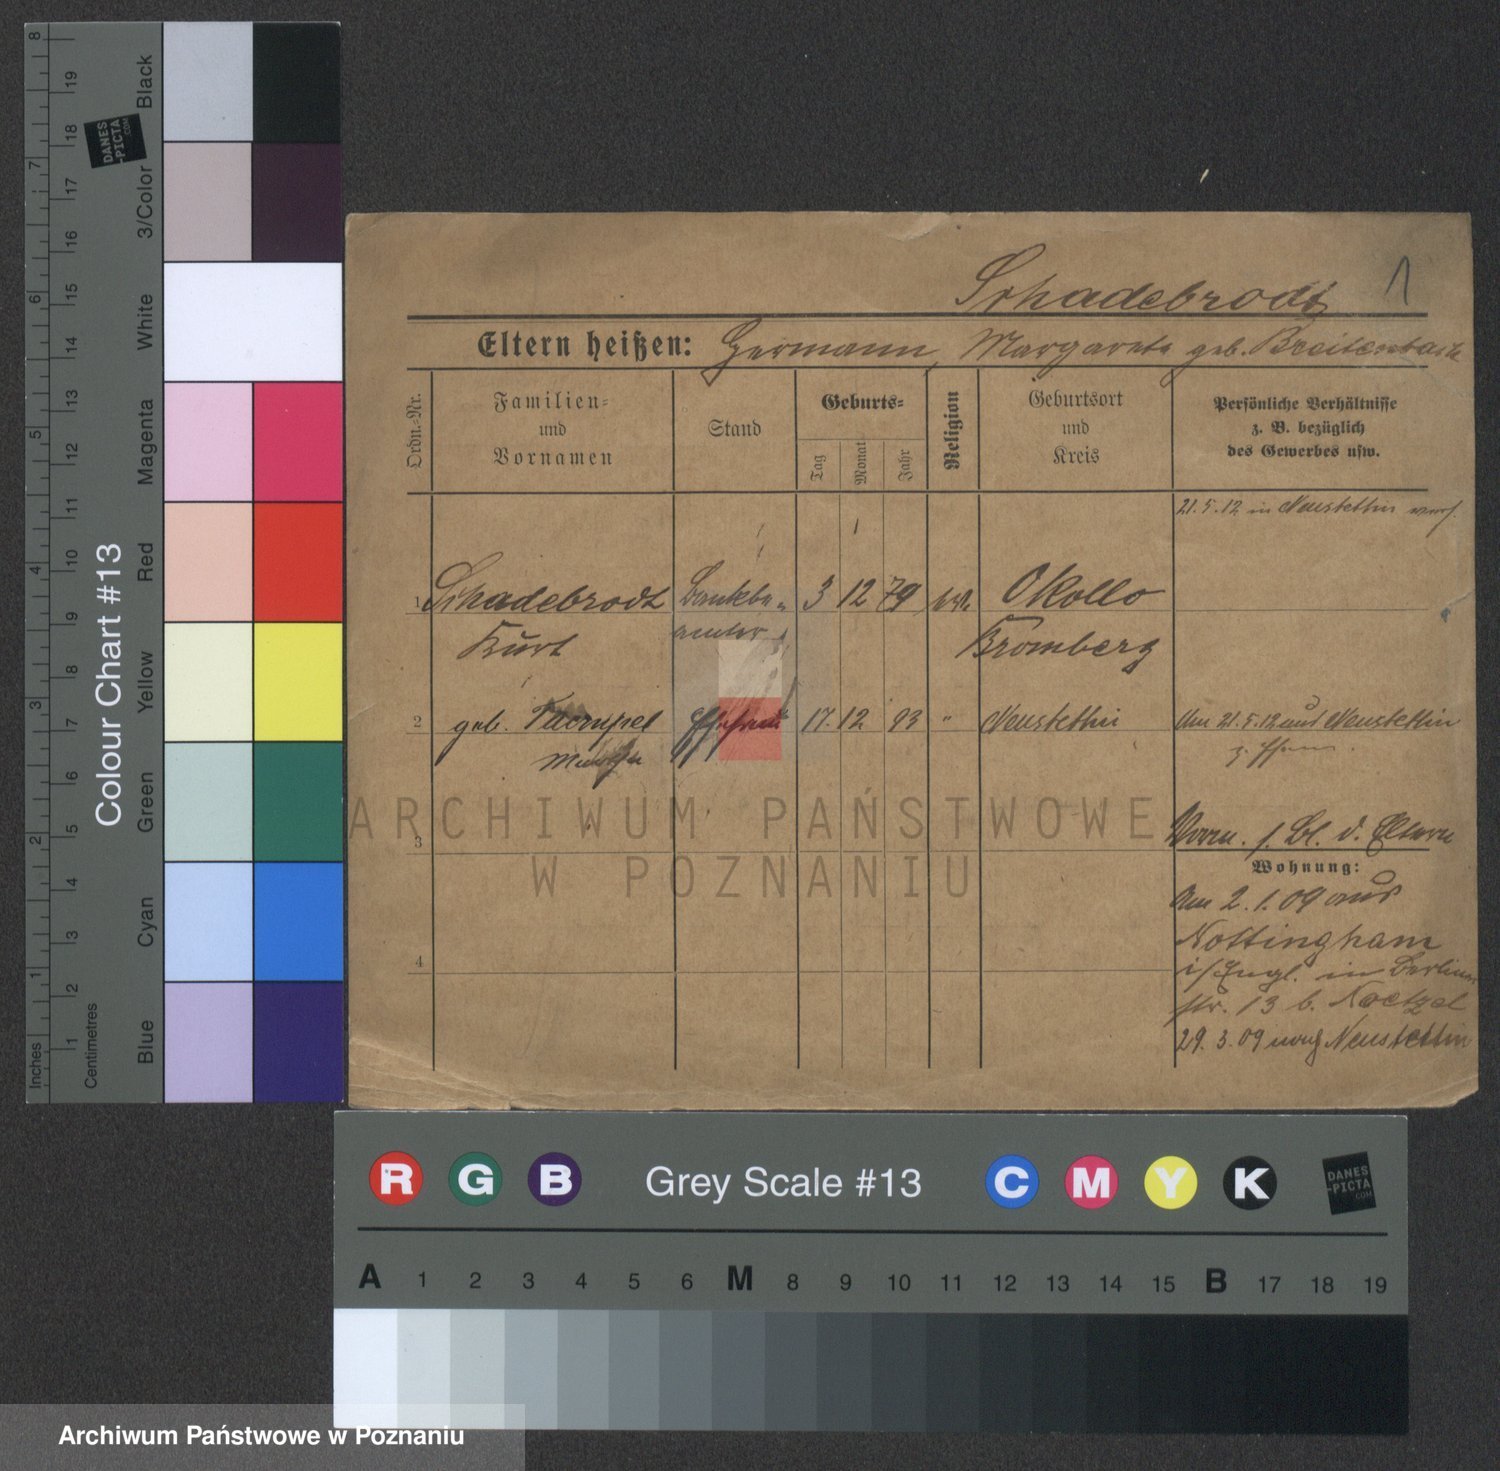 Schadebrodt 1
Eltern heißen: Hermann, Margarete geb. Breitenbach
Ordn.-Nr.
Familien-
und
Vornamen
Stand
Geburts-
Tag
Monat
Jahr
Religion
Geburtsort
und
Kreis
Persönliche Verhältnisse
z. B. bezüglich
des Gewerbes usw.
21.5.12 in Neustettin
1 Schadebrodt Bankbe- 3 12 79 Okollo
Kurt amter Bromberg
2 geb. Ehefrau 17. 12 93 " Neustettin Am 21.5.12 aus Neustettin
z.
3
Verm. s. Bl. d. Eltern
Wohnung:
Am 2.1.09 aus
Nottingham
4
i/Engl. in Berliner
str. 13 b. Noetzel
29.3.09 nach Neustettin
ARCHIWUM PAŃSTWOWE
W POZNANIU
Colour Chart #13
Inches
Centimetres
1 2 3 4 5 6 7 8
1 2 3 4 5 6 7 8 9 10 11 12 13 14 15 16 17 18 19
Blue
Cyan
Green
Yellow
Red
Magenta
White
3/Color
Black
DANES
-PICTA
.COM
R G B Grey Scale #13 C M Y K
DANES
-PICTA
.COM
A 1 2 3 4 5 6 M 8 9 10 11 12 13 14 15 B 17 18 19
Archiwum Państwowe w Poznaniu